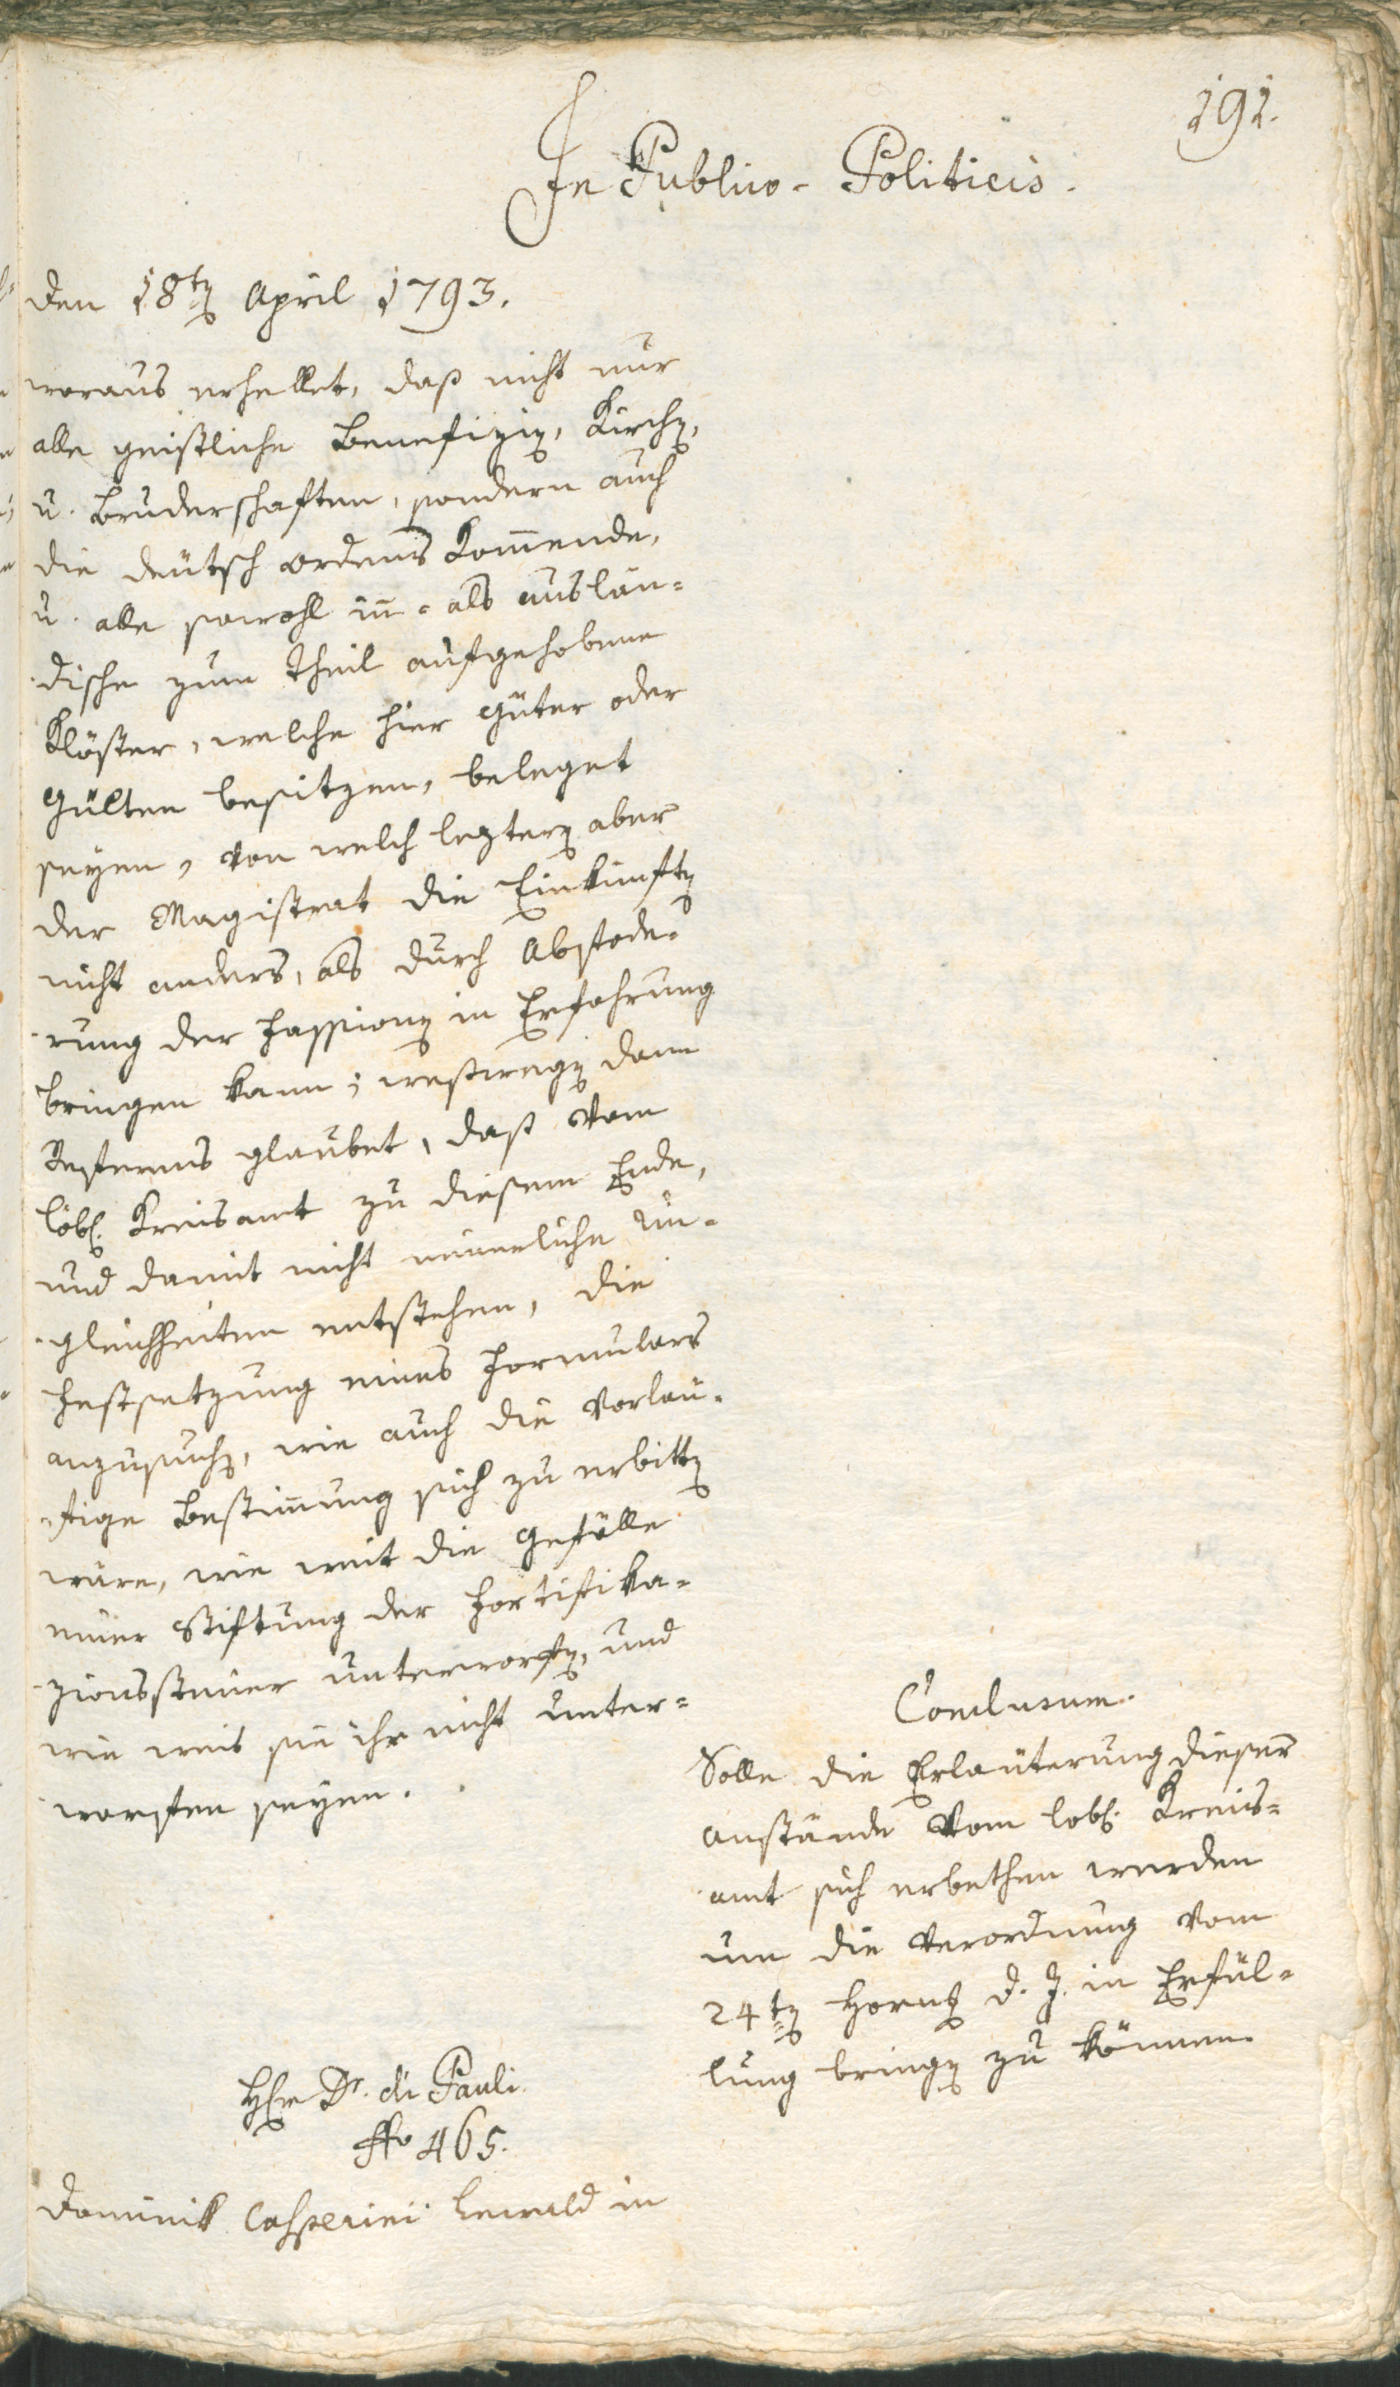 191.
In Publico-Politicis.
den 18ten April 1793.
woraus erhellet, daß nicht nur
alle geistliche Benefizien, Kirchen,
u. Bruderschaften, sondern auch
die deutsch ordens Kom̄ende,
u. alle sowohl in- als auslän-
dische zum theil aufgehobene
Klöster, welche hier Güter oder
Gülten besitzen, beleget
seyen, von welch leztern aber
der Magistrat die Einkünften
nicht anders, als durch Abfode-
rung der Fassionen in Erfahrung
bringen kann; weßwegen dann
Referens glaubet, daß vom
löbl. Kreisamt zu diesem Ende,
und damit nicht neuerliche Un-
gleichheiten entstehen, die
Festsetzung eines Formulars
anzusuchen, wie auch die Vorläu-
fige Bestim̄ung sich zu erbitten
wäre, wie weit die Gefälle
einer Stiftung der Fortifika-
zionssteuer unterworfen, und
wie weit sie ihr nicht unter-
worfen seyen.
Conclusum.
Solle die Erläuterung dieser
anstände vom löbl. Kreis-
amt sich erbethen werden
um die Verordnung vom
24ten Hornung d. J. in Erfül-
lung bringen zu können.
Herr Dr. di Pauli
No 465.
Dominik Casperini Lewald in